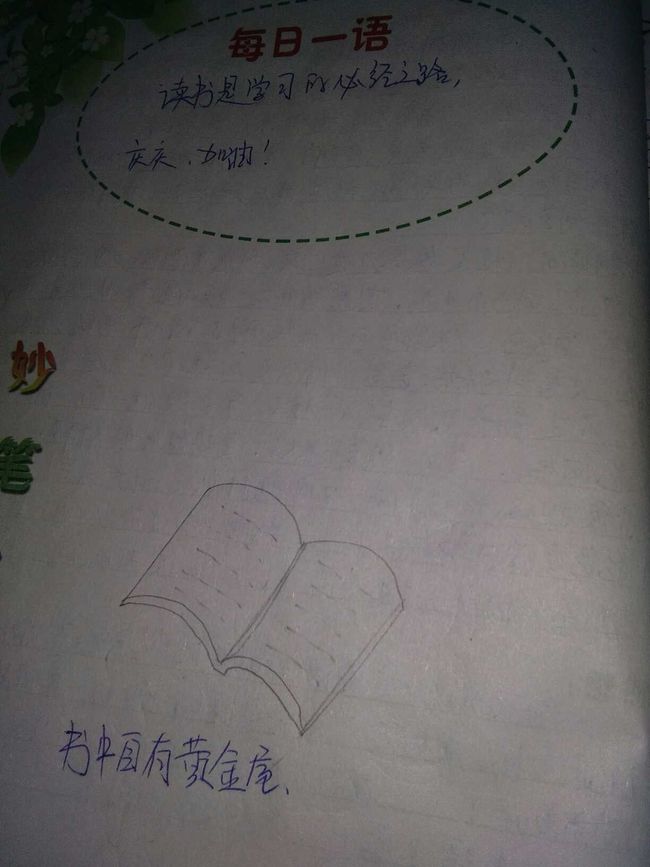 每日一语
读书是学习的必经之路,
庆庆、加油!
妙
笔
书中自有黄金屋、